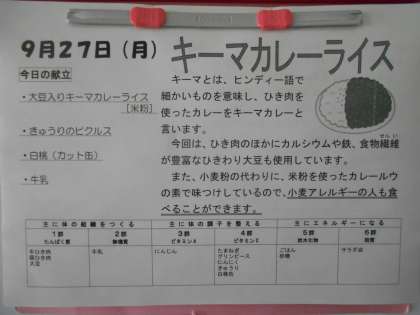 9月27日（月）
キーマカレーライス
今日の献立
・大豆入りキーマカレーライス
［米粉］
・きゅうりのピクルス
・白桃（カット缶）
・牛乳
キーマとは、ヒンディー語で
細かいものを意味し、ひき肉を
使ったカレーをキーマカレーと
言います。
今回は、ひき肉のほかにカルシウムや鉄、食物繊維
が豊富なひきわり大豆も使用しています。
また、小麦粉の代わりに、米粉を使ったカレールウ
の素で味つけしているので、小麦アレルギーの人も食
べることができます。
主に体の組織をつくる 主に体の調子を整える 主にエネルギーになる
1群 2群 3群 4群 5群 6群
たんぱく質 無機質 ビタミンA ビタミンC 炭水化物 脂質
牛ひき肉 牛乳 にんじん たまねぎ ごはん サラダ油
豚ひき肉 グリンピース 砂糖
大豆 にんにく
きゅうり
白桃缶